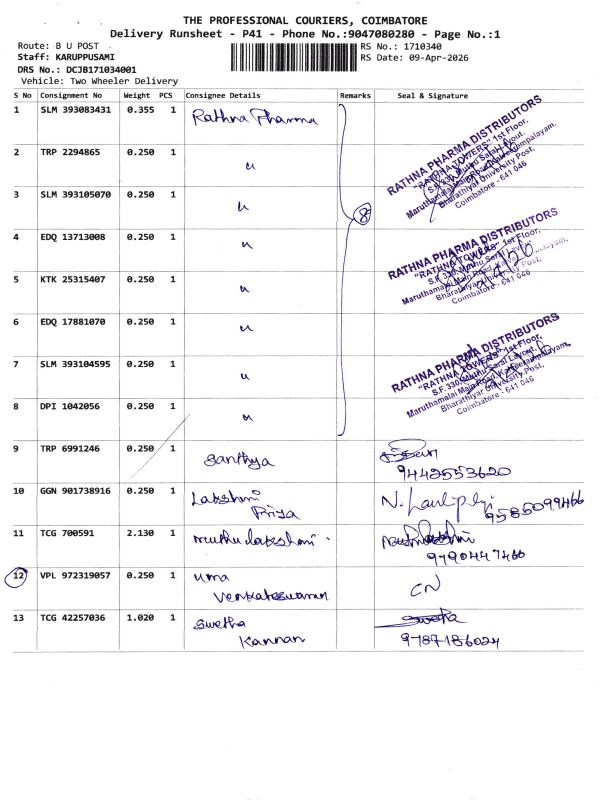 THE PROFESSIONAL COURIERS, COIMBATORE
Delivery Runsheet - P41 - Phone No.:9047080280 - Page No.:1
Route: B U POST
RS No.: 1710340
Staff: KARUPPUSAMI
RS Date: 09-Apr-2026
DRS No.: DCJB171034001
Vehicle: Two Wheeler Delivery
S No Consignment No Weight PCS Consignee Details Remarks Seal & Signature
1 SLM 393083431 0.355 1 Rathna Pharma
RATHNA PHARMA DISTRIBUTORS
"RATHNA TOWERS" 1st Floor,
S.F. 330, Muthu Sarai Layout,
Maruthamalai Main Road, Kalveerampalayam,
Bharathiyar University Post,
Coimbatore - 641 046
2 TRP 2294865 0.250 1 "
3 SLM 393105070 0.250 1 "
8
4 EDQ 13713008 0.250 1 "
RATHNA PHARMA DISTRIBUTORS
"RATHNA TOWERS" 1st Floor,
S.F. 330, Muthu Sarai Layout,
Maruthamalai Main Road,
Bharathiyar University Post,
Coimbatore - 641 046
5 KTK 25315407 0.250 1 "
6 EDQ 17881070 0.250 1 "
RATHNA PHARMA DISTRIBUTORS
"RATHNA TOWERS" 1st Floor,
S.F. 330, Muthu Sarai Layout,
Maruthamalai Main Road, Kalveerampalayam,
Bharathiyar University Post,
Coimbatore - 641 046
7 SLM 393104595 0.250 1 "
8 DPI 1042056 0.250 1 "
9 TRP 6991246 0.250 1 Santhya
9442553620
10 GGN 901738916 0.250 1 Lakshmi
Priya
9585099466
11 TCG 700591 2.130 1 muthu lakshmi
9790447466
12 VPL 972319057 0.250 1 uma
Venkateswaran
CN
13 TCG 42257036 1.020 1 Swetha
Kannan
Swetha
9787186024